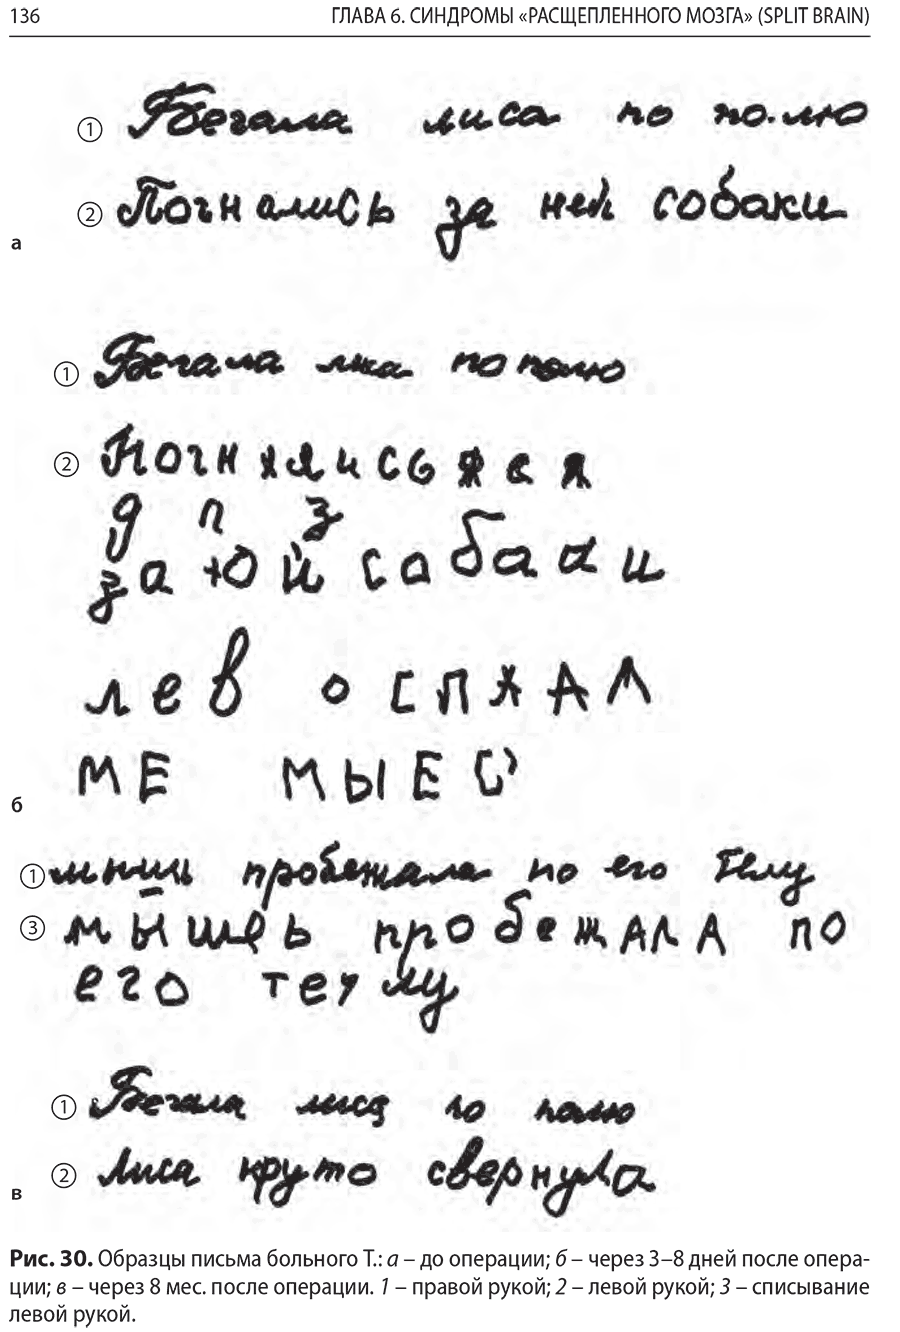 136 ГЛАВА 6. СИНДРОМЫ «РАСЩЕПЛЕННОГО МОЗГА» (SPLIT BRAIN)
1 Бегала лиса по полю
2 Погнались за ней собаки
а
1 Бегала лиса по полю
2
д п з
за юй собаки
лев о спяал
ме мыес
б
1 мышь пробежала по его телу
3 мышеь пробежала по
его
1 Бегала лиса по полю
2 Лиса круто свернула
в
Рис. 30. Образцы письма больного Т.: а – до операции; б – через 3–8 дней после опера-
ции; в – через 8 мес. после операции. 1 – правой рукой; 2 – левой рукой; 3 – списывание
левой рукой.